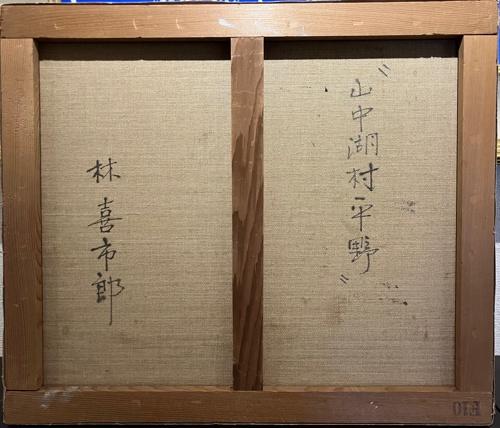 〃山中湖村平野〃
林喜市郎
F10